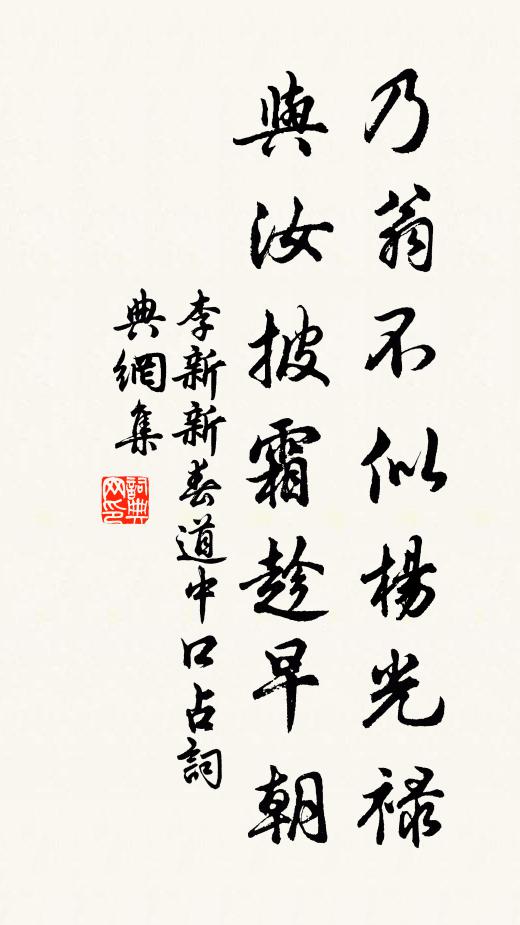 乃翁不似楊光祿
與汝披霜趁早朝
李新新春道中口占詞
典網集
詞典
网印